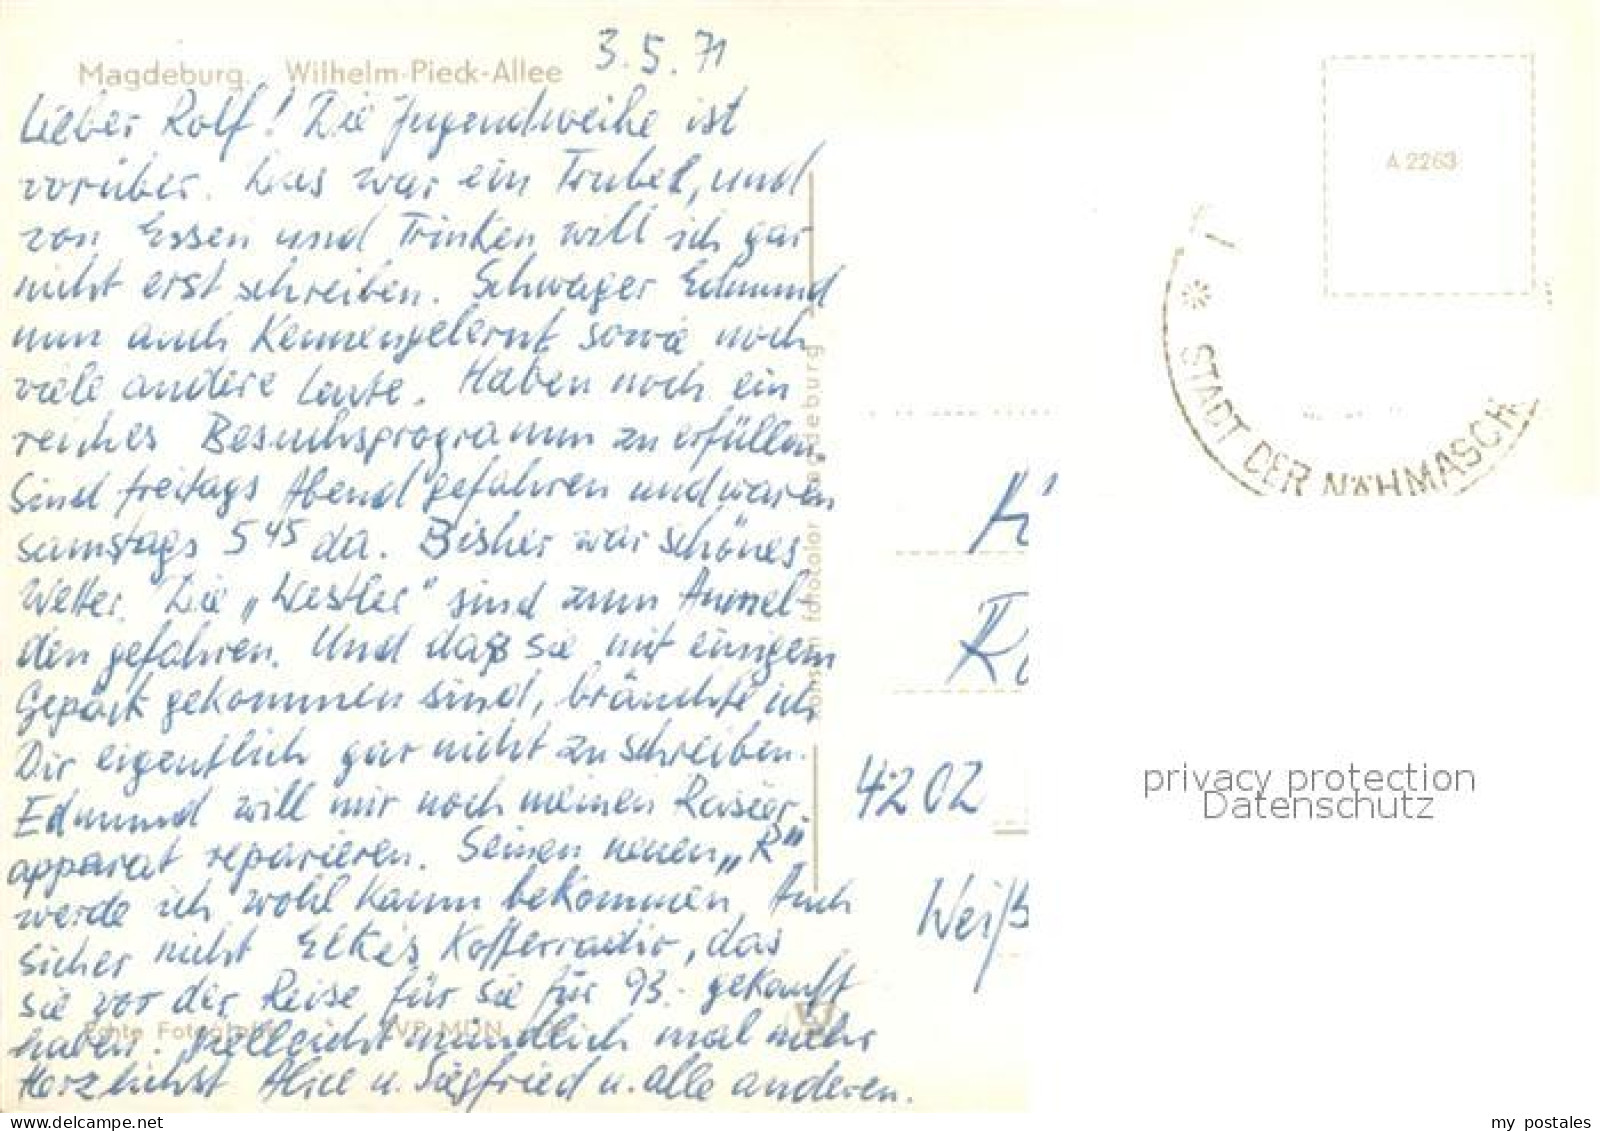 Magdeburg. Wilhelm-Pieck-Allee
3.5.71
Lieber Rolf! Die Jugendweihe ist
vorüber. Das war ein Trubel, und
von Essen und Trinken will ich gar
nicht erst schreiben. Schwager Edmund
nun auch kennengelernt sowie noch
viele andere Leute. Haben noch ein
reiches Besuchsprogramm zu erfüllen.
Sind freitags Abend gefahren und waren
samstags 5 45 da. Bisher war schönes
Wetter. Die „Westler" sind zum Anmel-
den gefahren. Und daß sie mit einigem
Gepäck gekommen sind, bräuchte ich
Dir eigentlich gar nicht zu schreiben.
Edmund will mir noch meinen Rasier-
apparat reparieren. Seinen neuen „R"
werde ich wohl kaum bekommen. Auch
sicher nicht Elke's Kofferradio, das
sie vor der Reise für sie für 93.- gekauft
haben. Vielleicht mündlich mal mehr
Herzlichst Alice u. Siegfried u. alle anderen.
Echte Fotografie
konsum fotocolor magdeburg
A 2263
* STADT DER NÄHMASCH
4202
Weiß
privacy protection
Datenschutz
www.delcampe.net
my_postales